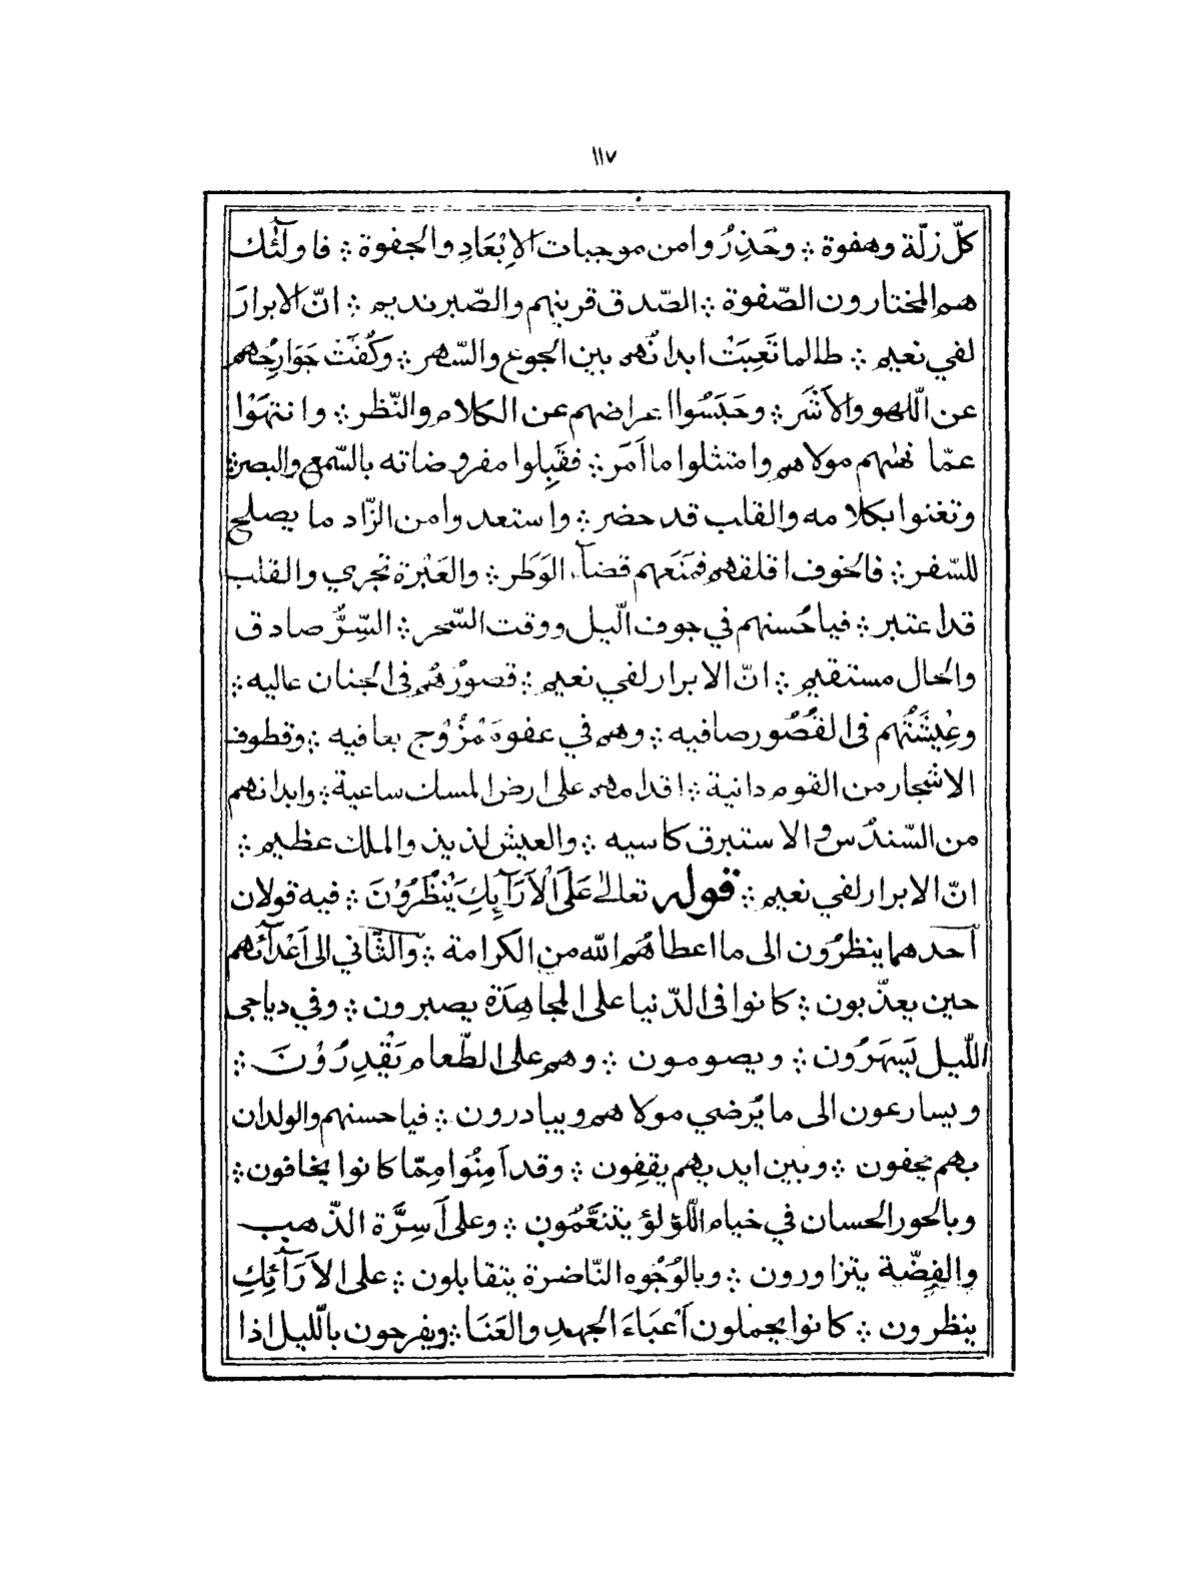 ١١٧
كلّ زلّة وهفوة ∴ وحَذِرُوا من موجبات الاِبْعَادِ والجفوة ∴ فاولٓئك
هم المختارون الصّفوة ∴ الصّدق قرينهم والصّبر نديم ∴ انّ الابرارَ
لفي نعيم ∴ طالما تَعِبَتْ ابدانُهم بين الجوع والسّهر ∴ وكُفَّتْ جَوَارِحُهم
عن اللّهو والاَشَر ∴ وحَبَسُوا اعراضهم عن الكلام والنّظر ∴ وانتهَوْا
عمّا نهٰهم مولاهم وامتثلوا ما اَمَر ∴ فقَبِلوا مفروضاته بالسّمع والبصر ∴
وتغنوا بكلامه والقلب قد حضر ∴ واستعدوا من الزّاد ما يصلح
للسّفر ∴ فالخوف اقلقهم فمَنَعَهم قضآء الوَطَر ∴ والعَبْرة تجري والقلب
قد اعتبر ∴ فيا حُسنهم في جوف اللّيل ووقت السّحر ∴ السِّرُّ صادق
والحال مستقيم ∴ انّ الابرار لفي نعيم ∴ قصورُهُم فى الجنان عاليه ∴
وعِيْشَتُهُم فى القُصُور صافيه ∴ وهم في عفوة مَمْزُوْج بعافيه ∴ وقطوف
الاشجار من القوم دانية ∴ اقدامهم على ارض المسك ساعية ∴ وابدانهم
من السّندُس والاستبرق كاسيه ∴ والعيش لذيذ والملك عظيم ∴
انّ الابرار لفي نعيم ∴ قوله تعالىٰ عَلَى الْاَرَآئِكِ يَنْظُرُوْنَ ∴ فيه قولان
اَحدهما ينظرُون الى ما اعطاهُم اللّه من الكرامة ∴ والثّاني الى اَعْدآئهم
حين يعذّبون ∴ كانوا فى الدّنيا على المجاهدَة يصبرون ∴ وفي دياجى
اللّيل يَسهَرُون ∴ ويصومون ∴ وهم على الطّعام يَقْدِرُوْنَ ∴
ويسارعون الى ما يُرضي مولاهم ويبادرون ∴ فيا حسنهم والولدان
بهم يحفون ∴ وبين ايديهم يقِفون ∴ وقد اَمِنُوا مِمّا كانوا يخافون ∴
وبالحور الحسان في خيام اللّؤلؤ يتنعَّمُون ∴ وعلى اَسِرَّة الذّهب
والفِضّة يتزاورون ∴ وبالوُجُوه النّاضرة يتقابلون ∴ على الاَرَآئِكِ
ينظرون ∴ كانوا يحملون اَعْبَاءَ الجهدِ والعَنَا ∴ ويفرحون باللّيل اذا